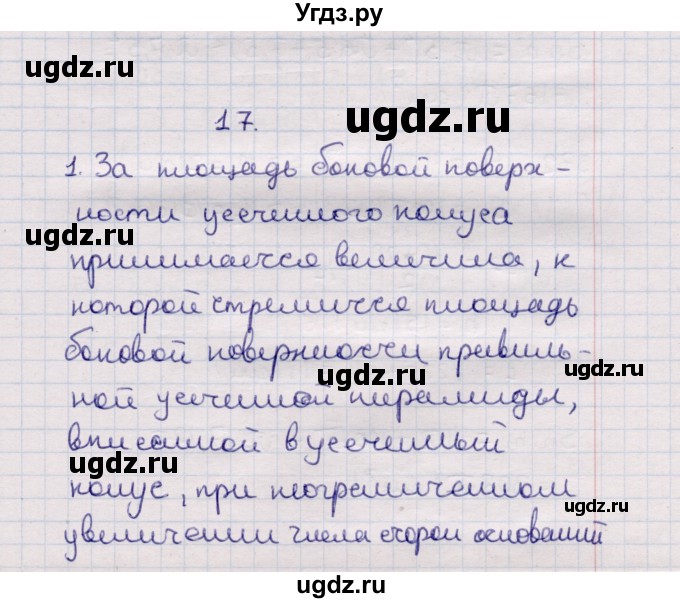 Угдз.ру
ugdz.ru
17.
ugdz.ru
1. За площадь боковой поверх-
ности усеченного конуса
ugdz.ru
принимается величина, к
которой стремится площадь
боковой поверхности правиль-
ugdz.ru
ной усеченной пирамиды,
вписанной в усеченный
ugdz.ru
конус, при неограниченном
ugdz.ru
увеличении числа сторон оснований
ugdz.ru